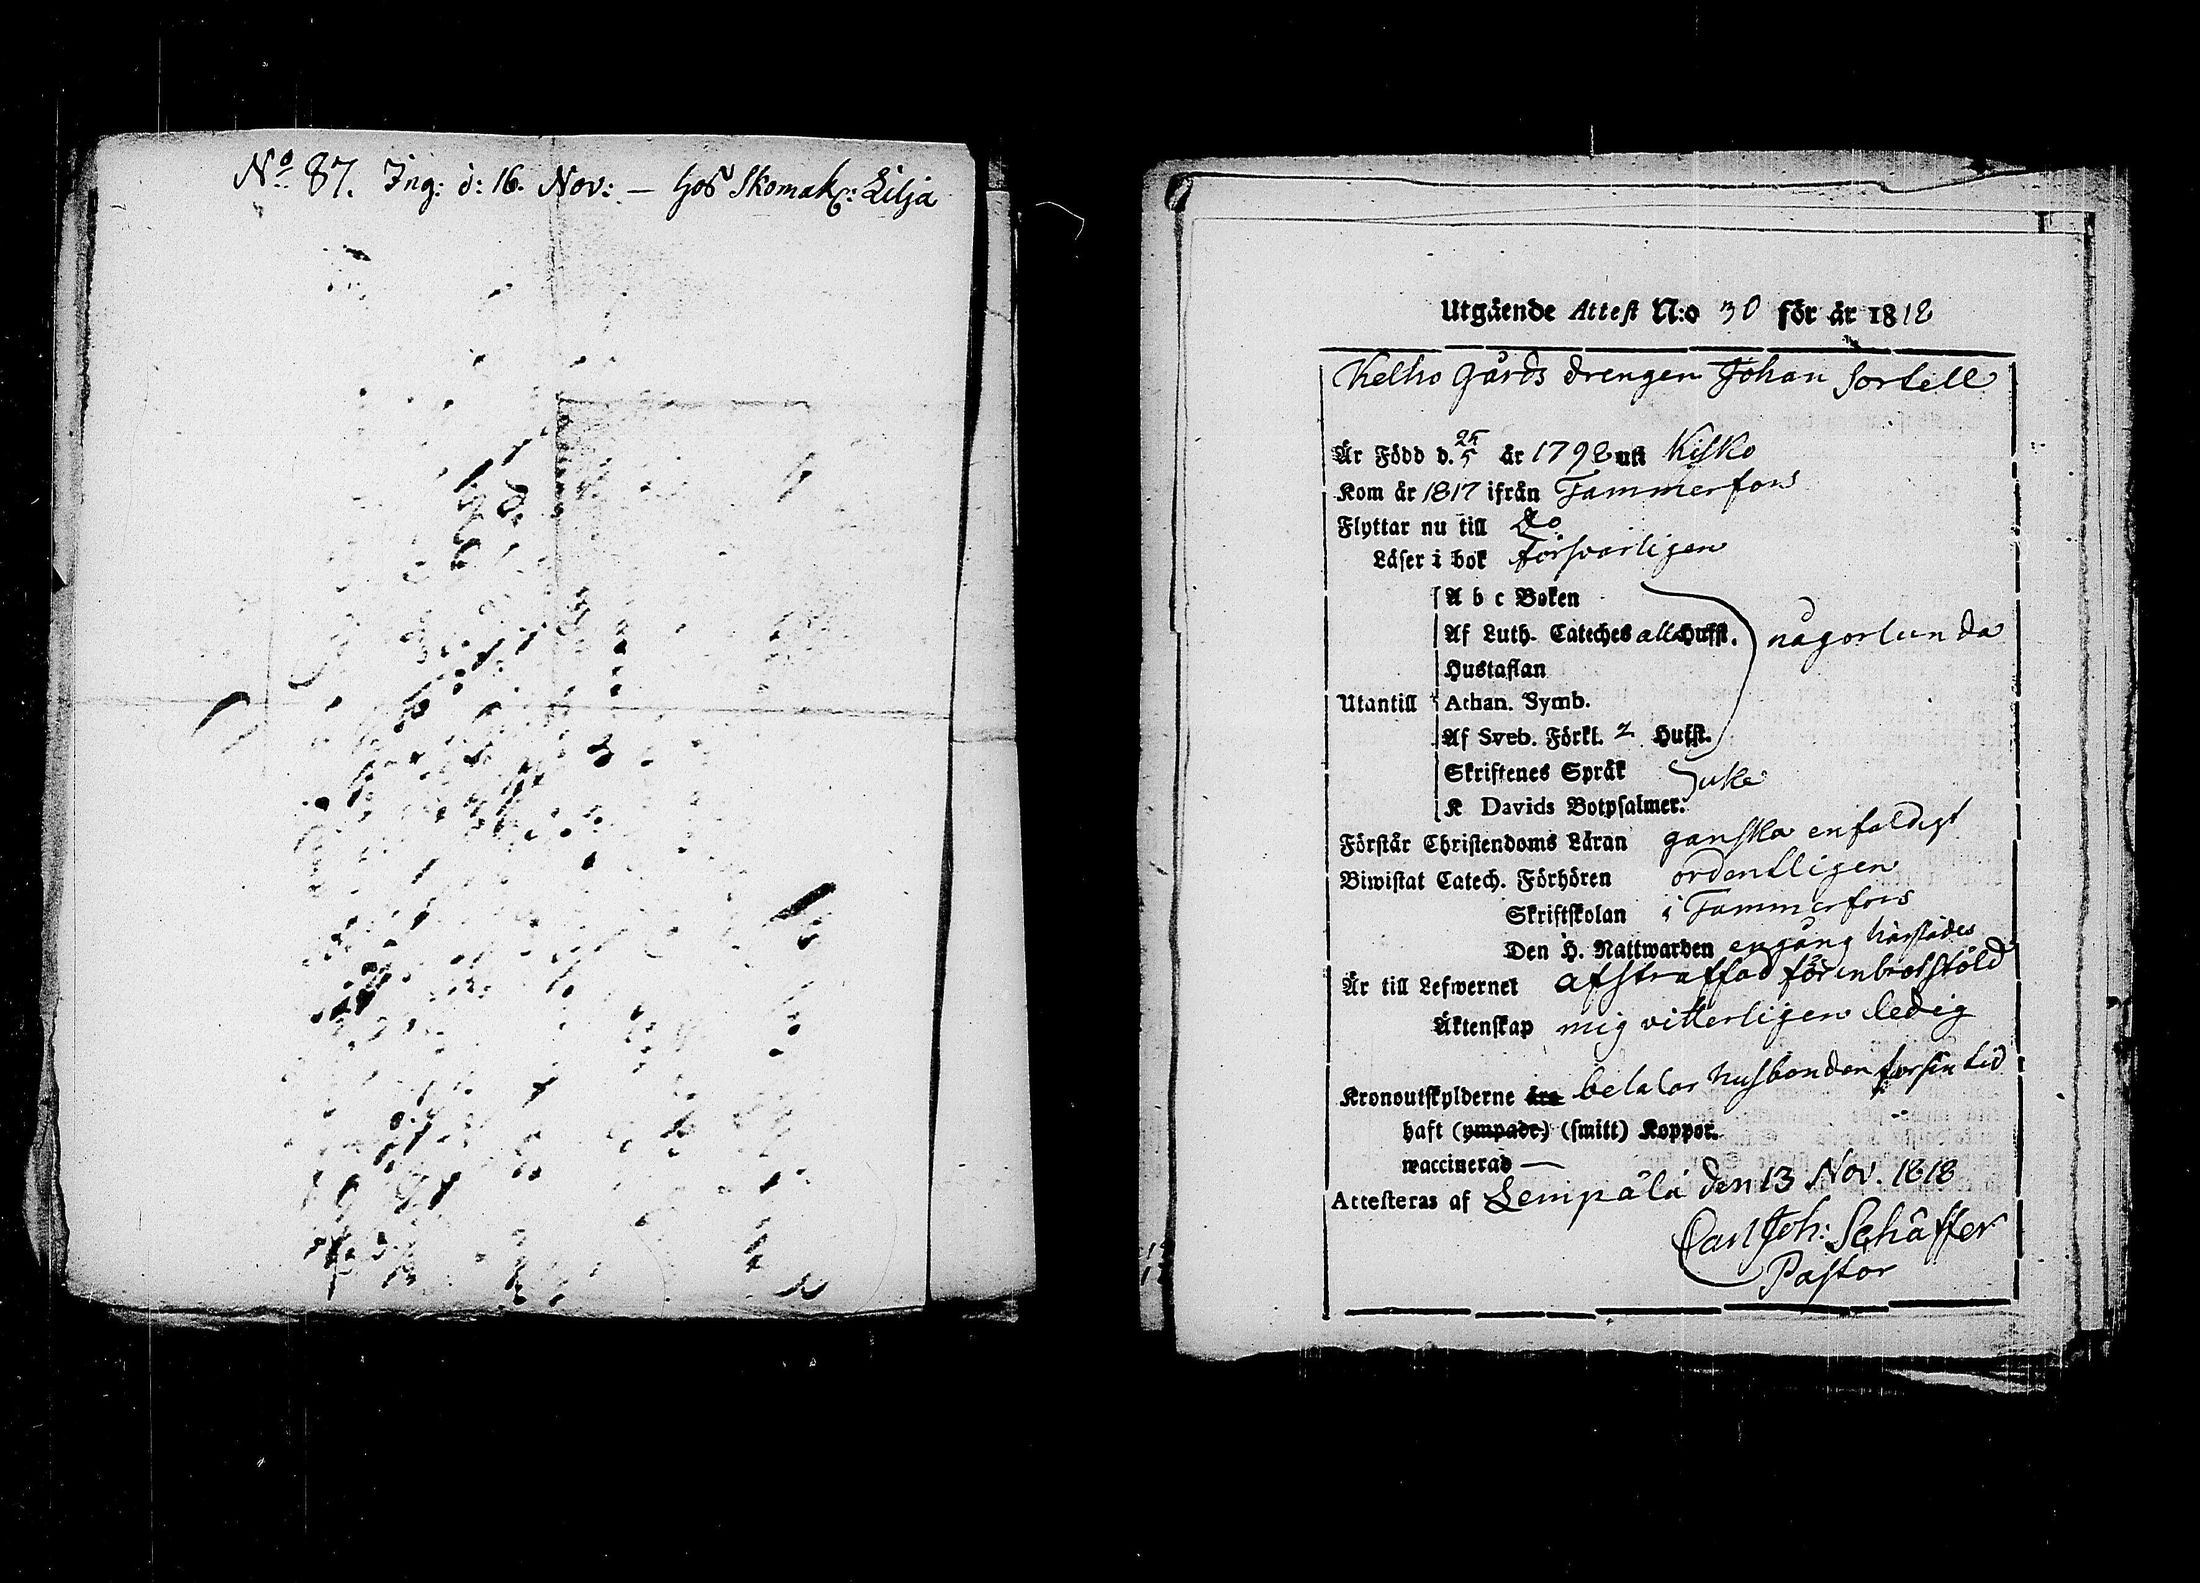 No 87. Ing: d: 16. Nov: — hos Skomak: Lilja
Utgående Attest N:o 30 för år 1818
Kelho gårds drengen Johan Sortell
Är Född d. 25/5 år 1798 uti Kisko
Kom år 1817 ifrån Tammerfors
Flyttar nu till Do
Läser i bok försvarligen
A b c Boken
Af Luth. Cateches alla Hufst. någorlunda
Hustaflan
Utantill Athan. Symb.
Af Sveb. Förkl. 2 Hufst.
Skriftenes Språk
K Davids Botpsalmer. icke
Förstår Christendoms Läran ganska enfaldigt
Biwistat Catech. Förhören ordentligen
Skriftskolan i Tammerfors
Den H. Nattwarden engång härstädes
Är till Lefwernet afstraffad för inbrottsstöld
Äktenskap mig vitterligen ledig
Kronoutskylderne äro betalar husbonden för sin tid
haft (ympade) (smitt) Koppor.
waccinerad —
Attesteras af Lempälä den 13 Nov. 1818
Carl Joh: Schäffer
Pastor